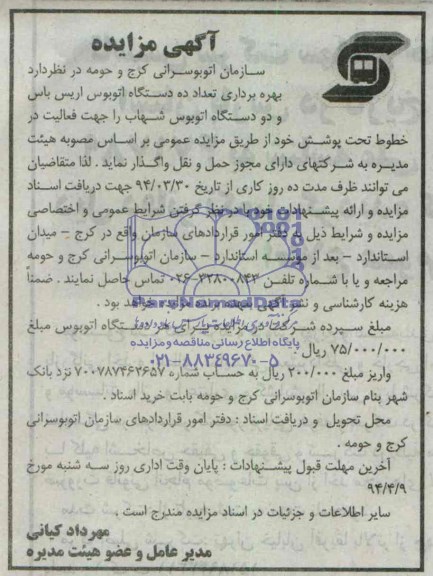 آگهی مزایده
سازمان اتوبوسرانی کرج و حومه در نظردارد
بهره برداری تعداد ده دستگاه اتوبوس اریس باس
و دو دستگاه اتوبوس شهاب را جهت فعالیت در
خطوط تحت پوشش خود از طریق مزایده عمومی بر اساس مصوبه هیئت
مدیره به شرکتهای دارای مجوز حمل و نقل واگذار نماید . لذا متقاضیان
می توانند ظرف مدت ده روز کاری از تاریخ ۹۴/۰۳/۳۰ جهت دریافت اسناد
مزایده و ارائه پیشنهادات خود با در نظر گرفتن شرایط عمومی و اختصاصی
مزایده و شرایط ذیل به دفتر امور قراردادهای سازمان واقع در کرج – میدان
استاندارد – بعد از موسسه استاندارد – سازمان اتوبوسرانی کرج و حومه
مراجعه و یا با شماره تلفن ۳۳۸۰۰۸۴۳-۰۲۶ تماس حاصل نمایند . ضمناً
هزینه کارشناسی و نشر آگهی بعهده برنده مزایده خواهد بود .
ParsNamadData
مبلغ سپرده شرکت در مزایده برای هر دستگاه اتوبوس مبلغ
پایگاه اطلاع رسانی مناقصه و مزایده
۷۵/۰۰۰/۰۰۰ ریال .
۰۲۱-۸۸۳۴۹۶۷۰-۵
واریز مبلغ ۲۰۰/۰۰۰ ریال به حساب شماره ۷۰۰۷۸۷۴۶۳۶۵۷ نزد بانک
شهر بنام سازمان اتوبوسرانی کرج و حومه بابت خرید اسناد .
محل تحویل و دریافت اسناد : دفتر امور قراردادهای سازمان اتوبوسرانی
کرج و حومه .
آخرین مهلت قبول پیشنهادات : پایان وقت اداری روز سه شنبه مورخ
۹۴/۴/۹
سایر اطلاعات و جزئیات در اسناد مزایده مندرج است .
مهرداد کیانی
مدیر عامل و عضو هیئت مدیره